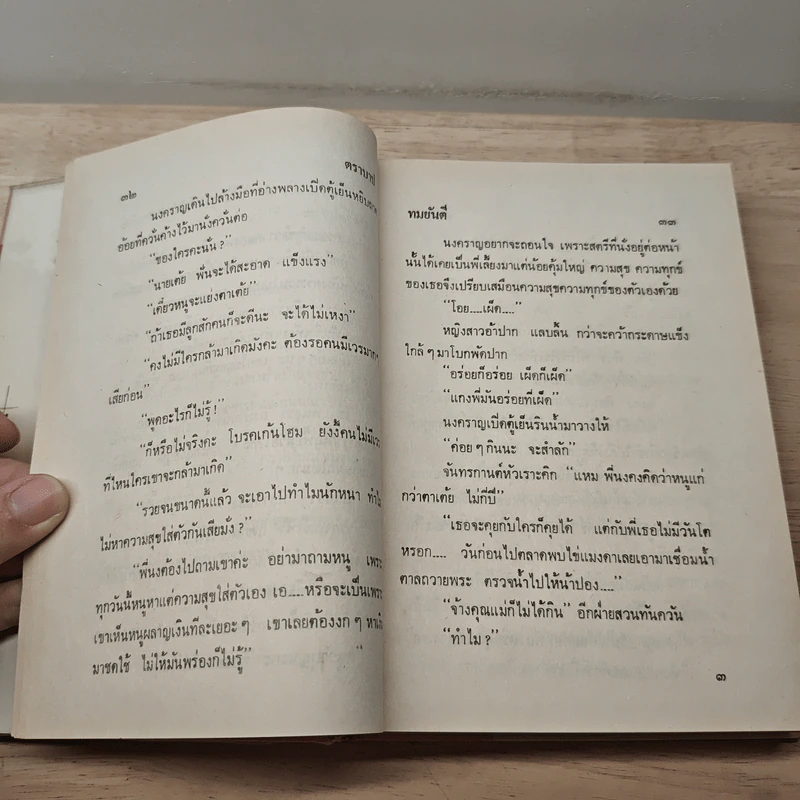 ๓๒
ตราบาป
นงคราญเดินไปล้างมือที่อ่างพลางเปิดตู้เย็นหยิบ
อ้อยที่ควั่นค้างไว้มานั่งควั่นต่อ
“ของใครคะนั่น ?”
“นายเต้ย ฟันจะได้สะอาด แข็งแรง”
“เดี๋ยวหนูจะแย่งตาเต้ย”
“ถ้าเธอมีลูกสักคนก็จะดีนะ จะได้ไม่เหงา”
“คงไม่มีใครกล้ามาเกิดมังคะ ต้องรอคนมีเวรมาก
เสียก่อน”
“พูดอะไรก็ไม่รู้ !”
“ก็หรือไม่จริงคะ โบรคเก้นโฮม ยังงี้คนไม่มีเวร
ที่ไหนใครเขาจะกล้ามาเกิด”
“รวยจนขนาดนี้แล้ว จะเอาไปทำไมนักหนา ทำไม
ไม่หาความสุขใส่ตัวกันเสียมั่ง ?”
“พี่นงต้องไปถามเขาค่ะ อย่ามาถามหนู เพราะ
ทุกวันนี้หนูหาแต่ความสุขใส่ตัวเอง เอ....หรือจะเป็นเพราะ
เขาเห็นหนูผลาญเงินทีละเยอะๆ เขาเลยต้องงกๆ หาเงิน
มาชดใช้ ไม่ให้มันพร่องก็ไม่รู้”
ทมยันตี
๓๓
นงคราญอยากจะถอนใจ เพราะสตรีที่นั่งอยู่ต่อหน้า
นั้นได้เคยเป็นพี่เลี้ยงมาแต่น้อยคุ้มใหญ่ ความสุข ความทุกข์
ของเธอจึงเปรียบเสมือนความสุขความทุกข์ของตัวเองด้วย
“โอย....เผ็ด....”
หญิงสาวอ้าปาก แลบลิ้น กว่าจะคว้ากระดาษแข็ง
ใกล้ๆ มาโบกพัดปาก
“อร่อยก็อร่อย เผ็ดก็เผ็ด”
“แกงพี่มันอร่อยที่เผ็ด”
นงคราญเปิดตู้เย็นรินน้ำมาวางให้
“ค่อยๆ กินนะ จะสำลัก”
จันทรกานต์หัวเราะคิก “แหม พี่นงคงคิดว่าหนูแก่
กว่าตาเต้ย ไม่กี่ปี”
“เธอจะคุยกับใครก็คุยได้ แต่กับพี่เธอไม่มีวันโต
หรอก.... วันก่อนไปตลาดพบไข่แมงดาเลยเอามาเชื่อมน้ำ
ตาลถวายพระ ตรวจน้ำไปให้น้าปอง....”
“จ้างคุณแม่ก็ไม่ได้กิน” อีกฝ่ายสวนทันควัน
“ทำไม ?”
๓